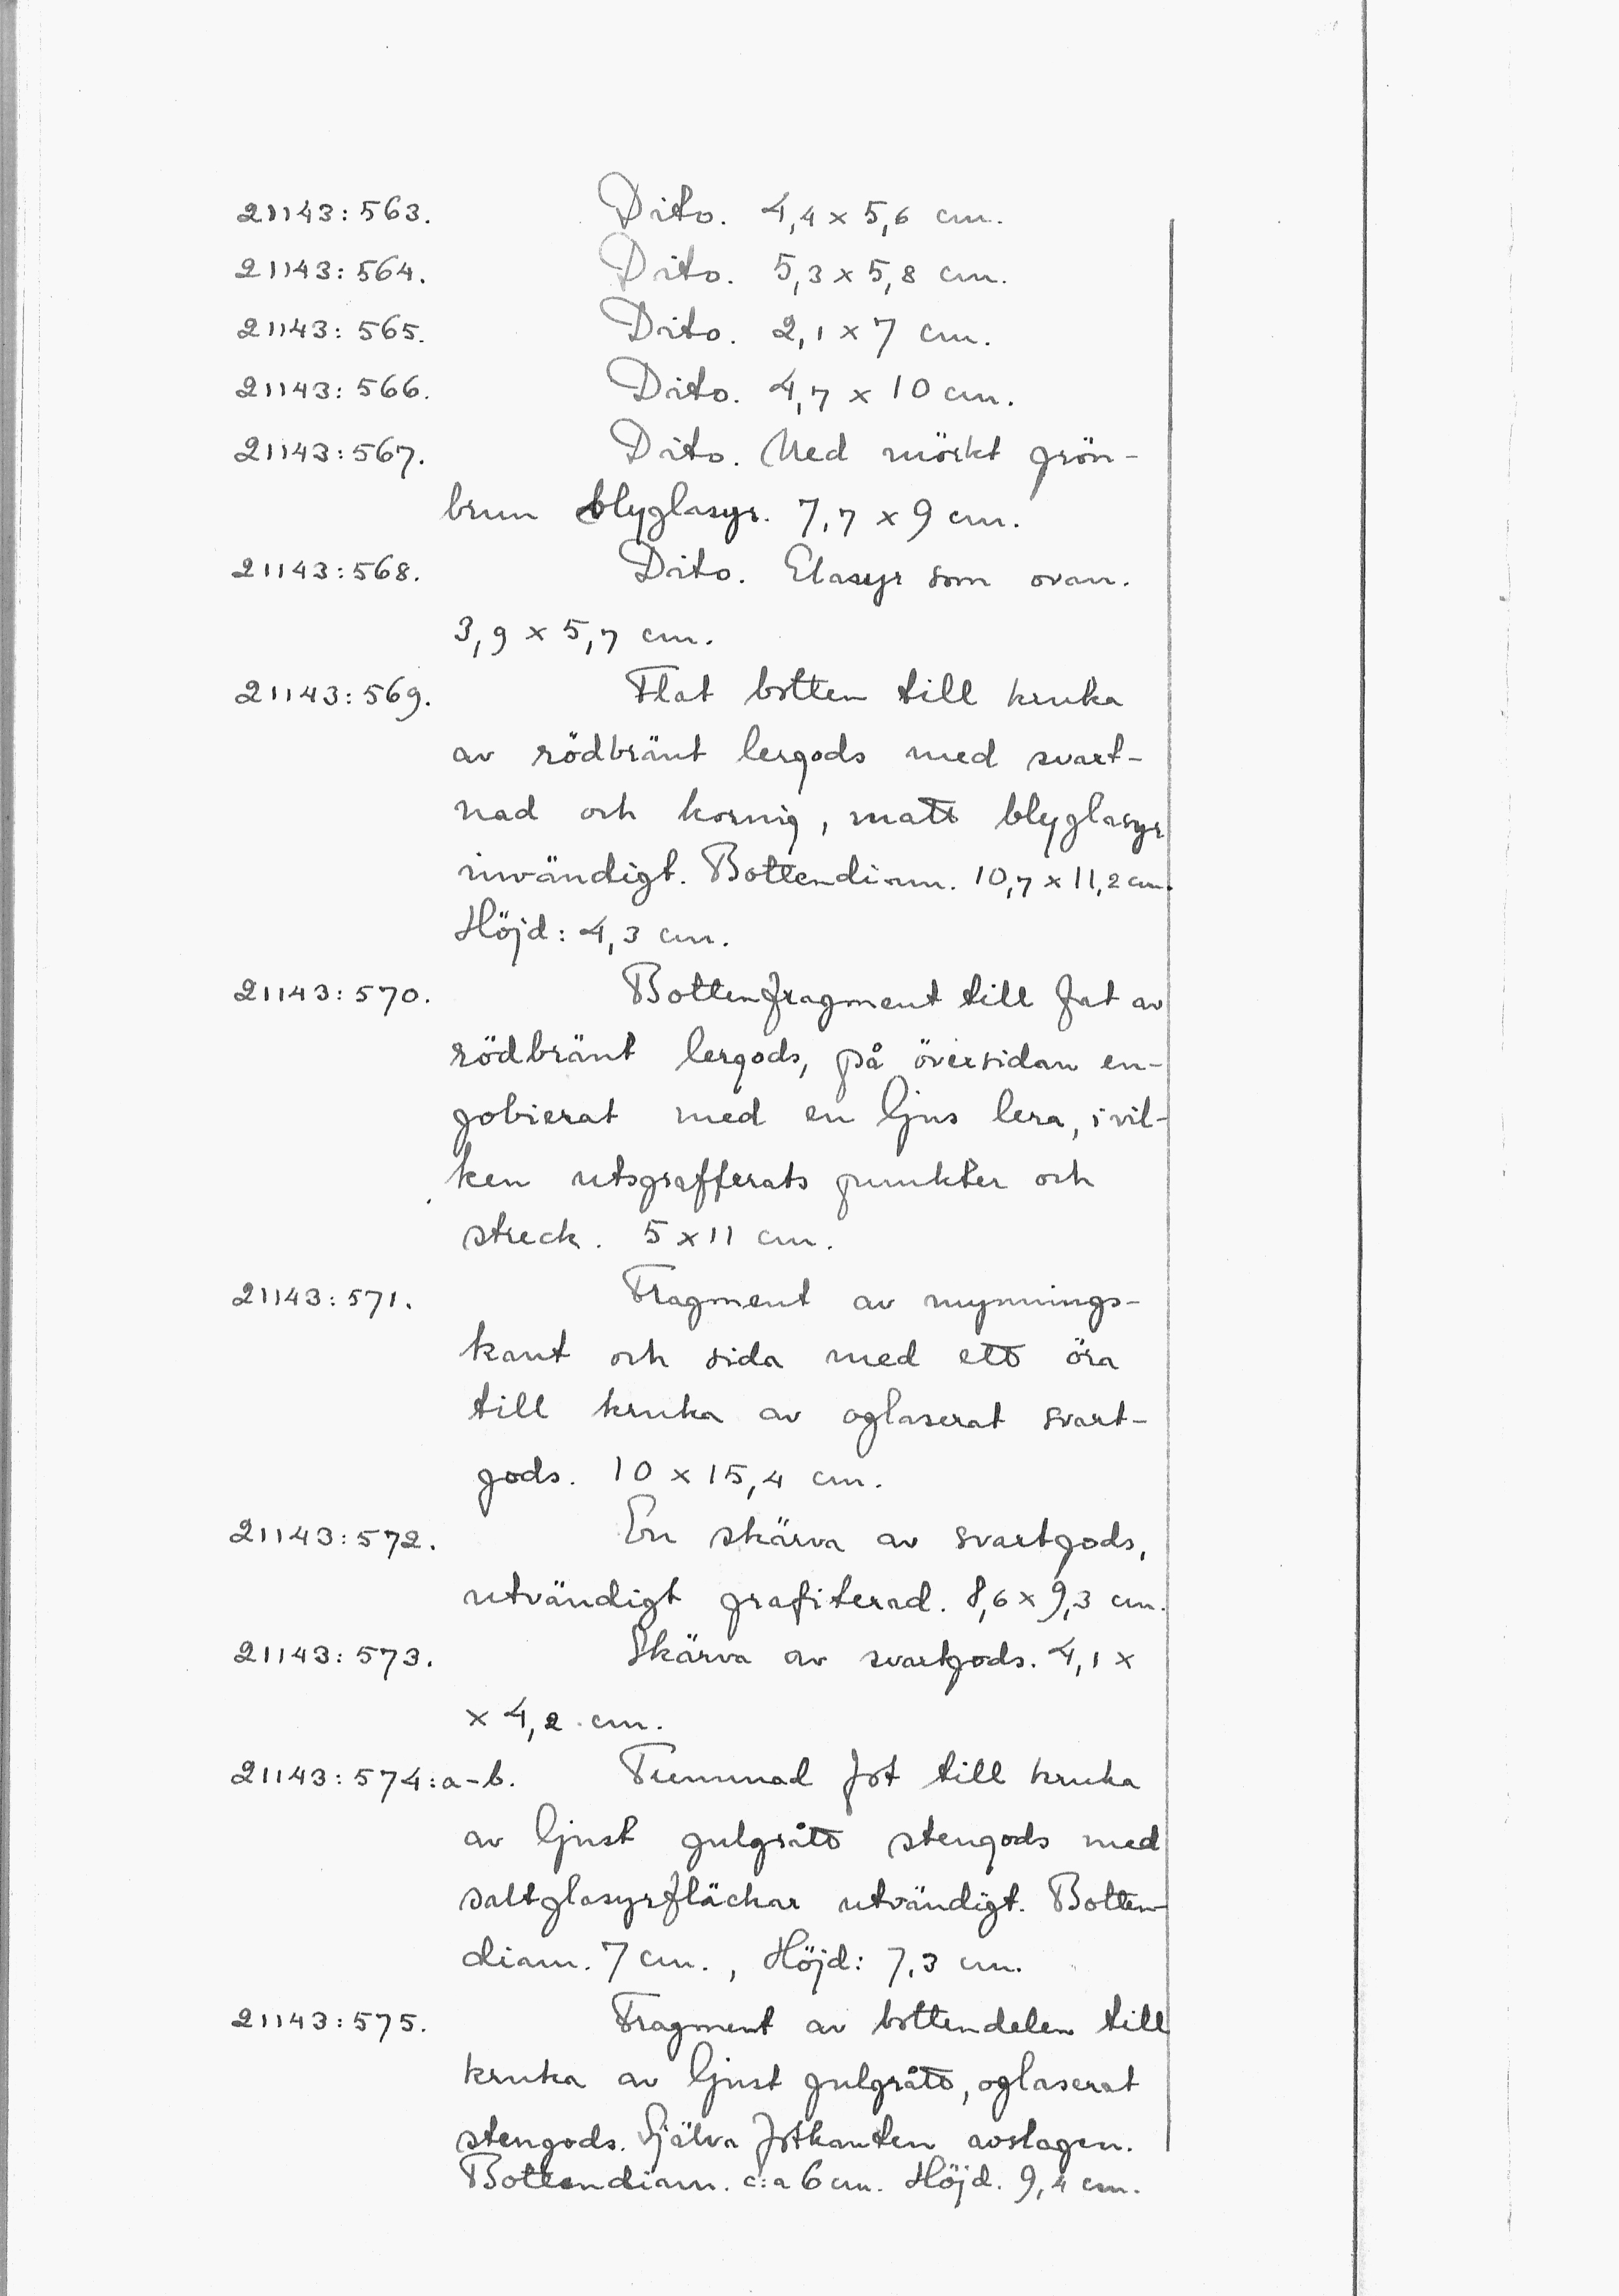 21143:563. Dito. 4,4 x 5,6 cm.
21143:564. Dito. 5,3 x 5,8 cm.
21143:565. Dito. 2,1 x 7 cm.
21143:566. Dito. 4,7 x 10 cm.
21143:567. Dito. Med mörkt grön-
brun blyglasyr. 7,7 x 9 cm.
21143:568. Dito. Glasyr som ovan.
3,9 x 5,7 cm.
21143:569. Flat botten till kruka
av rödbränt lergods med svart-
nad och kornig, matt blyglasyr
invändigt. Bottendiam. 10,7 x 11,2 cm.
Höjd: 4,3 cm.
21143:570. Bottenfragment till fat av
rödbränt lergods, på översidan en-
gobierat med en ljus lera, i vil-
ken utsgrafferats punkter och
streck. 5 x 11 cm.
21143:571. Fragment av mynnings-
kant och sida med ett öra
till kruka av oglaserat svart-
gods. 10 x 15,4 cm.
21143:572. En skärva av svartgods,
utvändigt grafiterad. 8,6 x 9,3 cm.
21143:573. Skärva av svartgods. 4,1 x
x 4,2 cm.
21143:574:a-b. Tummad fot till kruka
av ljust gulgrått stengods med
saltglasyrfläckar utvändigt. Botten-
diam. 7 cm., Höjd: 7,3 cm.
21143:575. Fragment av bottendelen till
kruka av ljust gulgrått, oglaserat
stengods. Själva fotkanten avslagen.
Bottendiam. c:a 6 cm. Höjd. 9,4 cm.